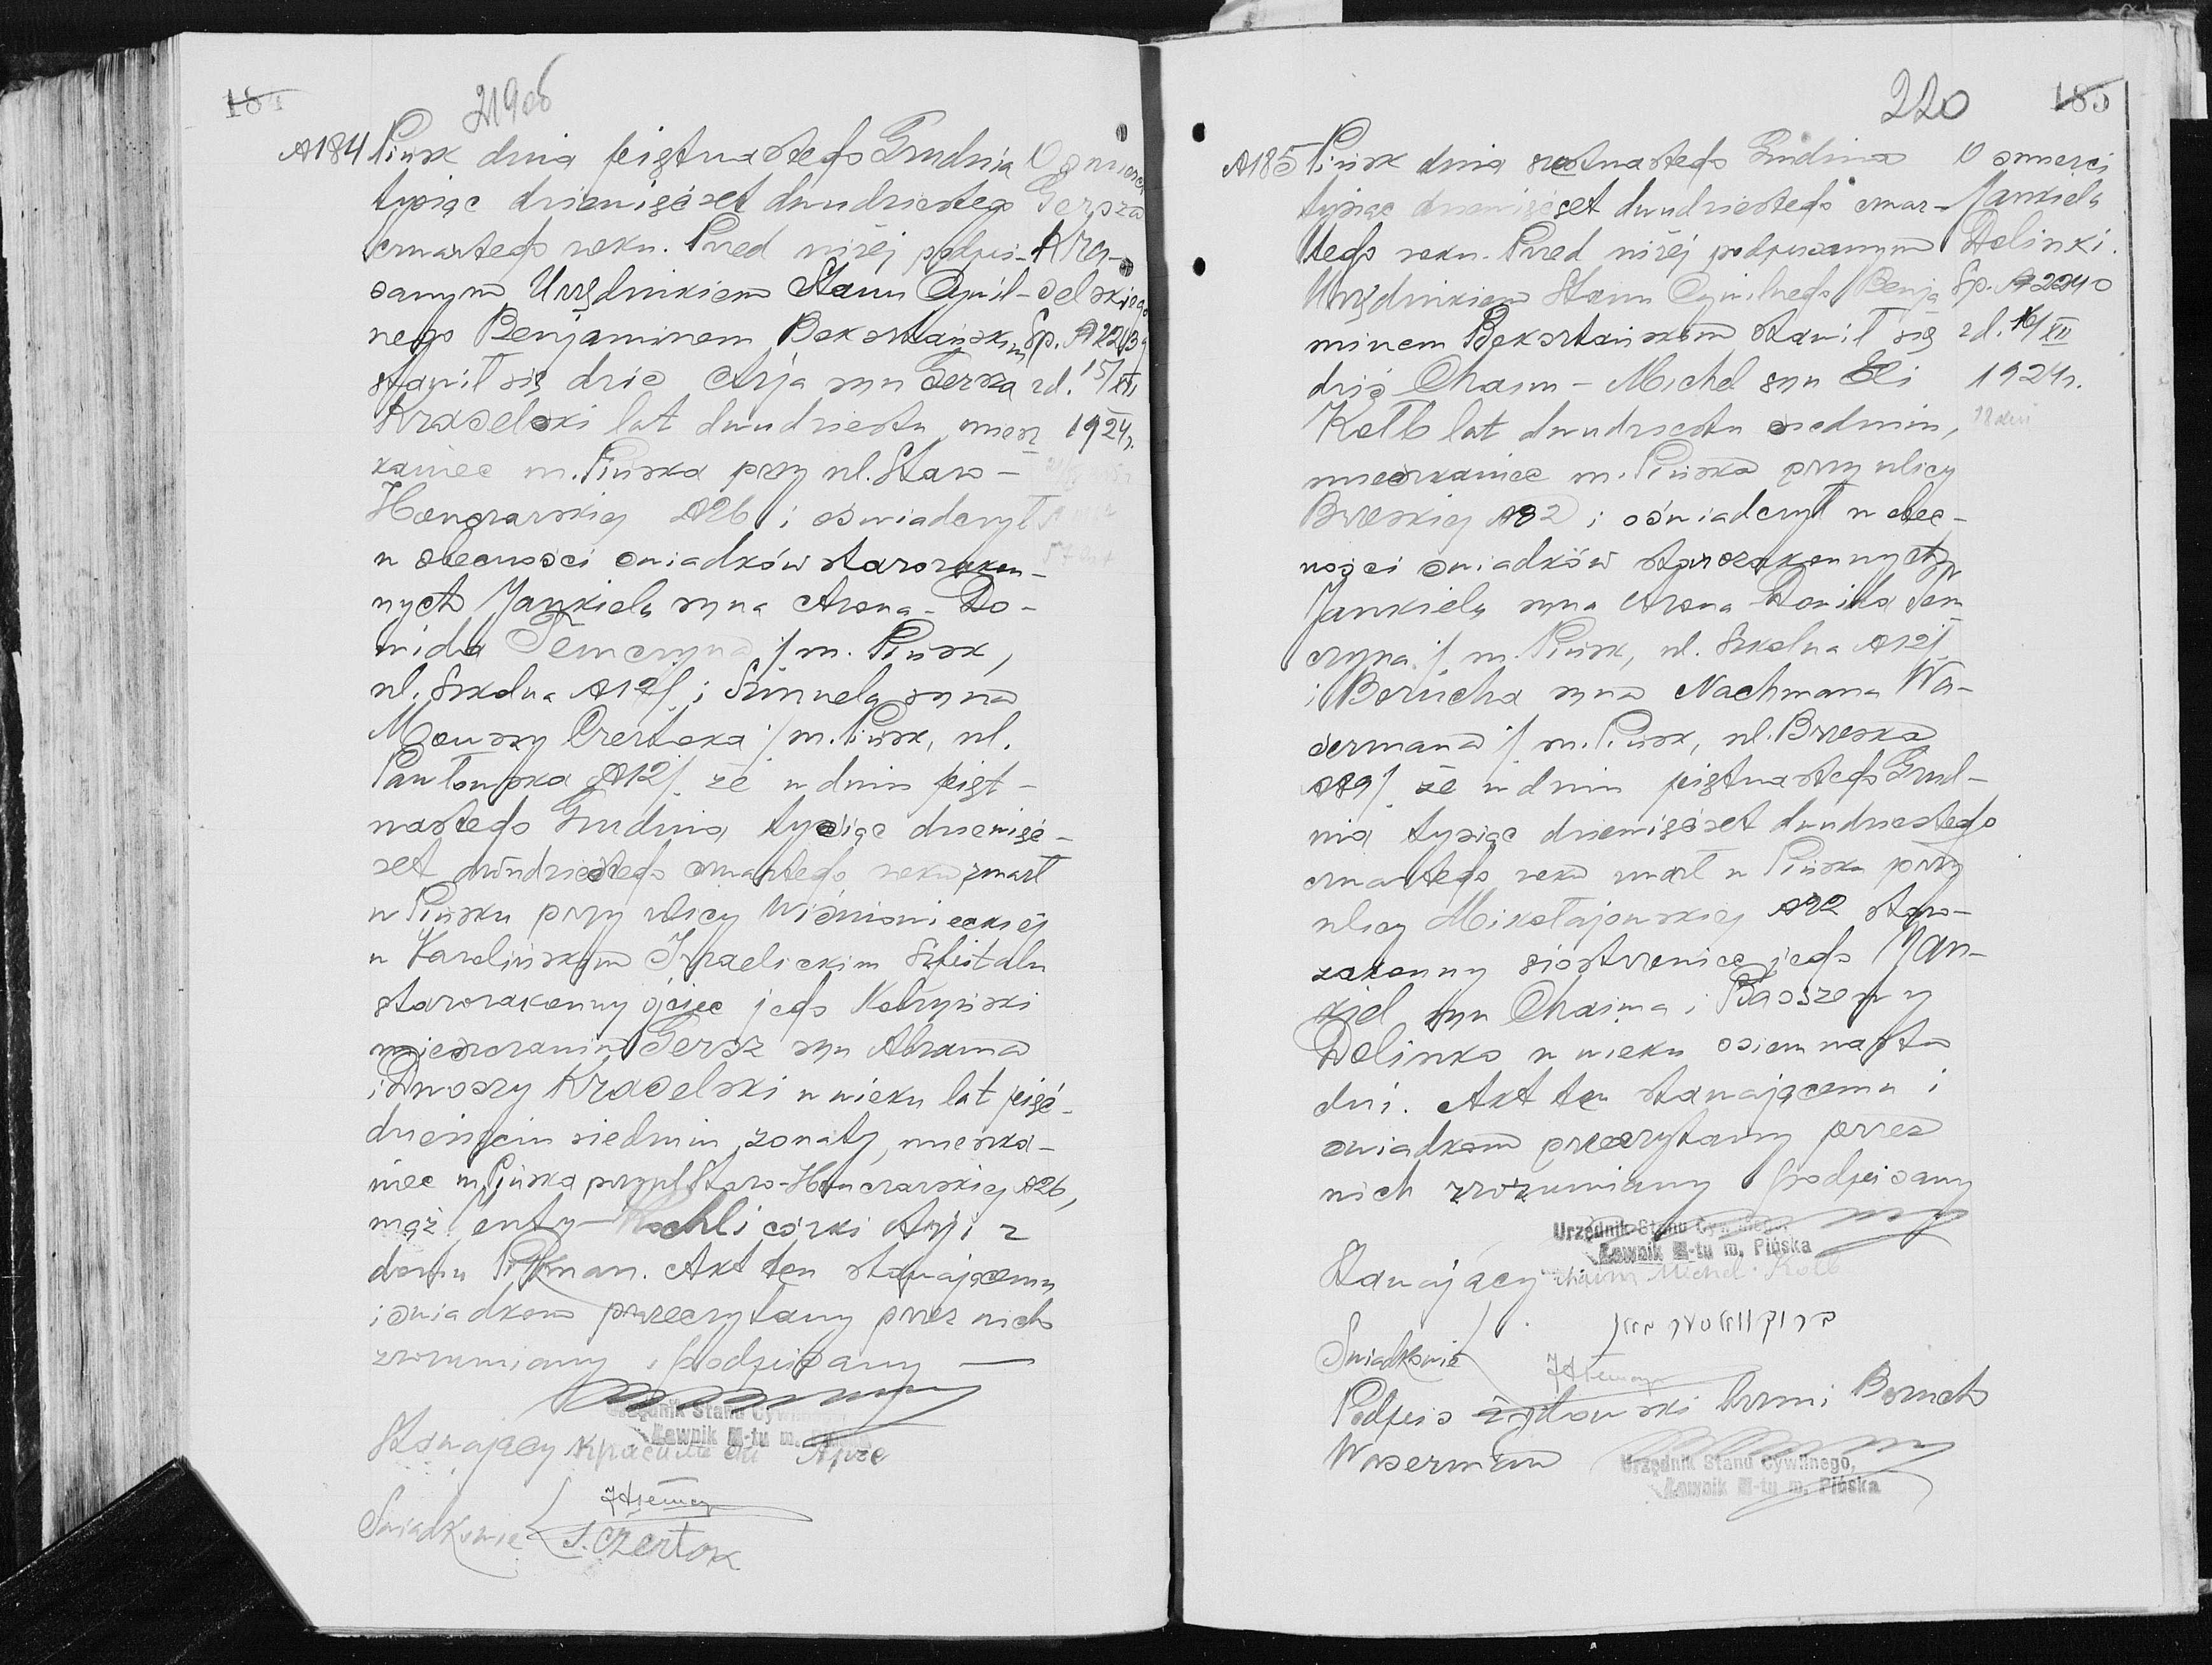 184
219 06
№184 Pińsk dnia piętnastego Grudnia
tysiąc dziewięćset dwudziestego
czwartego roku. Przed niżej podpi-
sanym Urzędnikiem Stanu Cywil-
nego Benjaminem Bokształskim
stawił się dziś Arja syn Gersza
Kraselski lat dwudziestu miesz
kaniec m. Pińska przy ul. Staro-
Honczarskiej №26 i oświadczył
w obecności świadków starozakon-
nych Jankiela syna Arona-Do-
wida Temczyna /m. Pińsk,
ul. Szkolna №12/ i Szmuela syna
Mowszy Czertoka /m. Pińsk, ul.
Pawłowska №12/ że w dniu pięt-
nastego Grudnia tysiąc dziewięć-
set dwudziestego czwartego roku zmarł
w Pińsku przy ulicy Wiśniowieckiej
w Karolińskim Izraelickim Szpitalu
starozakonny ojciec jego Kobryński
mieszczanin Gersz syn Abrama
i Dwoszy Kraselski w wieku lat pięć-
dziesięciu siedmiu, żonaty, mieszka-
niec m. Pińska przy ul Staro-Honczarskiej №26,
mąż Enty-Rochli córki Arji z
domu Pikman. Akt ten stawającemu
i świadkom przeczytany przez nich
zrozumiany i podpisany —
Urzędnik Stanu Cywilnego
Ławnik M-tu m.
Stawający Красильски Арже
Świadkowie
S. Czertok
O śmierci
Gersza
Kra-
selskiego
Sp. №2239
zd. 15/XII
1924r.
57 lat
220
185
№185 Pińsk dnia szestnastego Grudnia
tysiąc dziewięćset dwudziestego czwar-
tego roku. Przed niżej podpisanym
Urzędnikiem Stanu Cywilnego Benja
minem Bokształskim stawił się
dziś Chaim-Michel syn Eli
Kolb lat dwudziestu siedmiu,
mieszkaniec m. Pińska przy ulicy
Brzeskiej №82 i oświadczył w obec-
ności świadków starozakonnych
Jankiela syna Arona-Dowida Tem
czyna / m. Pińsk, ul. Szkolna №12/
i Borucha syna Nachmana Wa-
sermana / m. Pińsk, ul. Brzeska
№89/ że w dniu piętnastego Grud-
nia tysiąc dziewięćset dwudziestego
czwartego roku zmarł w Pińsku przy
ulicy Mikołajewskiej №22 staro-
zakonny siostrzeniec jego Jan-
kiel syn Chaima i
Dolinko w wieku osiemnastu
dni. Akt ten stawającemu i
świadkom przeczytany przez
nich zrozumiany i podpisany
Urzędnik Stanu Cywilnego,
Ławnik M-tu m. Pińska
Stawający Chaim Michel Kolb
Świadkowie
Podpis żydowski brzmi Boruch
Waserman
Urzędnik Stanu Cywilnego,
Ławnik M-tu m. Pińska
O śmierci
Jankiela
Dolinki.
Sp. №2240
zd. 16/XII
1924r.
18 dni